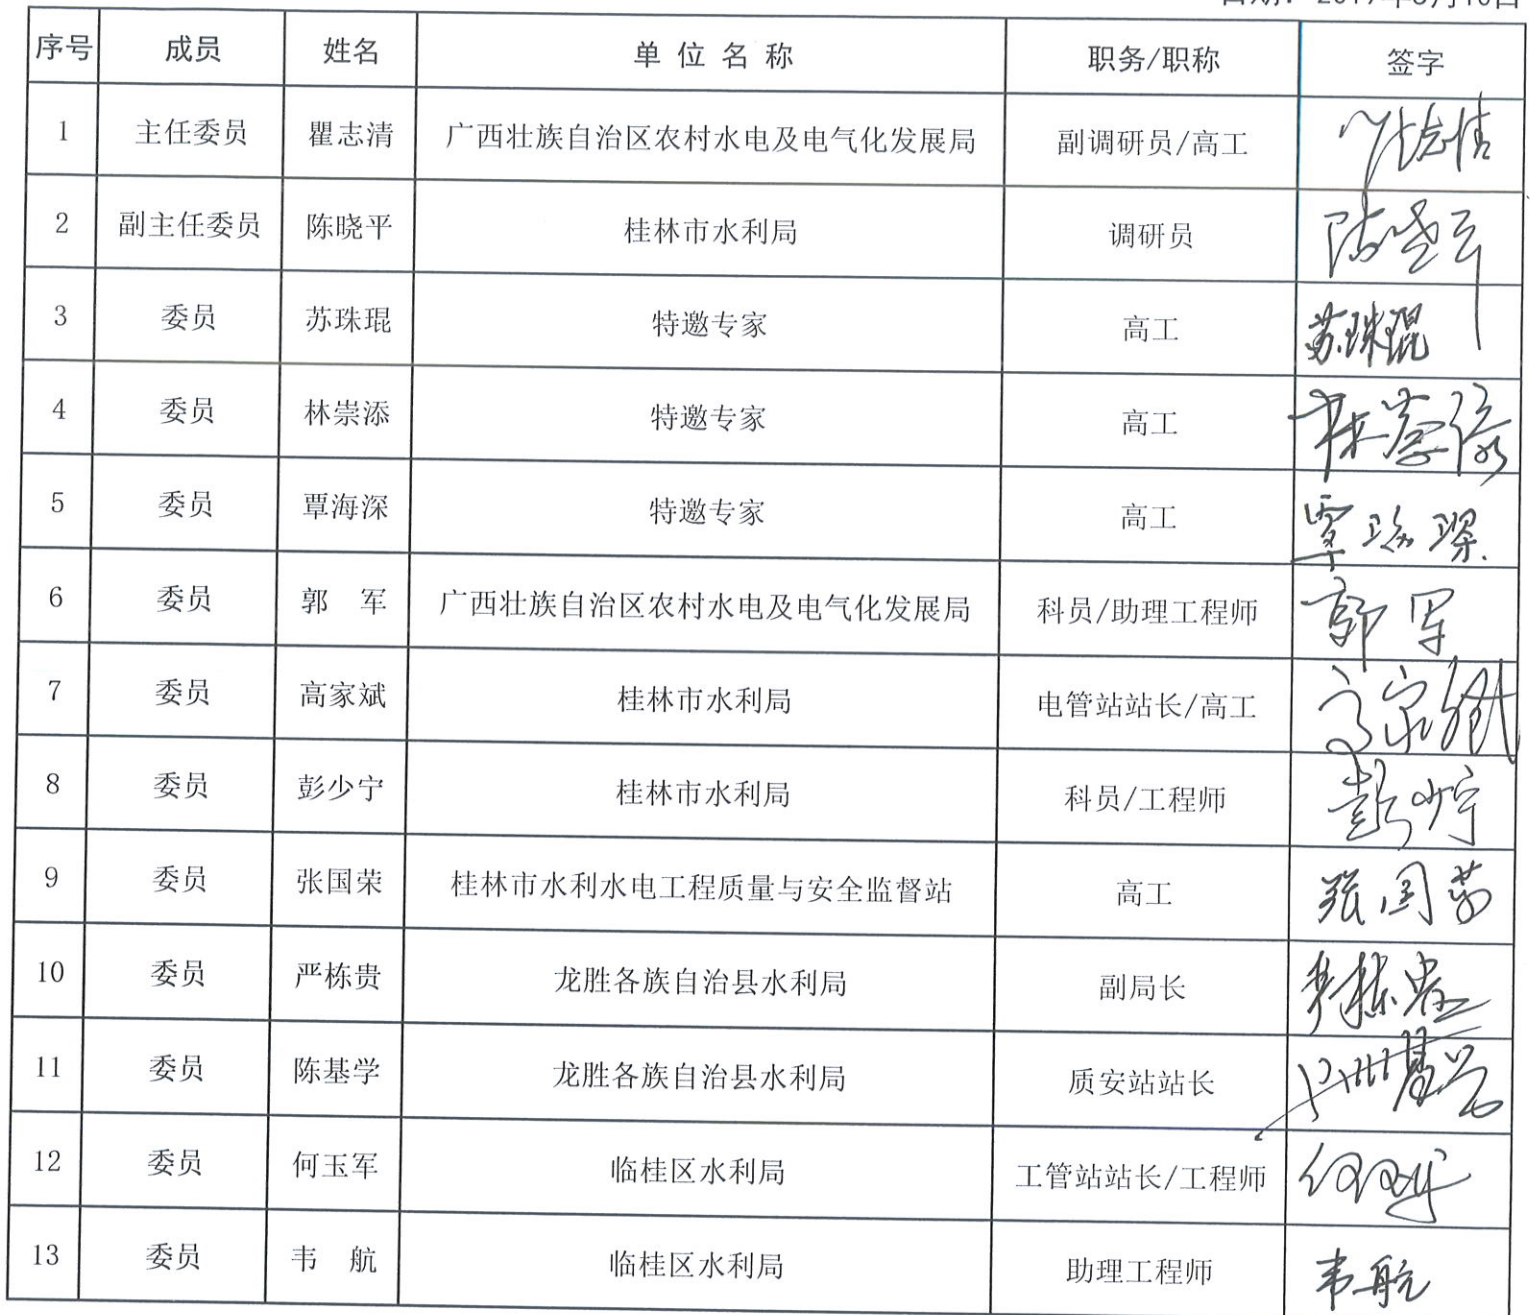 日期：2017年3月16日
序号 成员 姓名 单位名称 职务/职称 签字
1 主任委员 瞿志清 广西壮族自治区农村水电及电气化发展局 副调研员/高工 瞿志清
2 副主任委员 陈晓平 桂林市水利局 调研员 陈晓平
3 委员 苏珠琨 特邀专家 高工 苏珠琨
4 委员 林崇添 特邀专家 高工 林崇添
5 委员 覃海深 特邀专家 高工 覃海深
6 委员 郭 军 广西壮族自治区农村水电及电气化发展局 科员/助理工程师 郭军
7 委员 高家斌 桂林市水利局 电管站站长/高工 高家斌
8 委员 彭少宁 桂林市水利局 科员/工程师 彭少宁
9 委员 张国荣 桂林市水利水电工程质量与安全监督站 高工 张国荣
10 委员 严栋贵 龙胜各族自治县水利局 副局长 严栋贵
11 委员 陈基学 龙胜各族自治县水利局 质安站站长 陈基学
12 委员 何玉军 临桂区水利局 工管站站长/工程师 何玉军
13 委员 韦 航 临桂区水利局 助理工程师 韦航